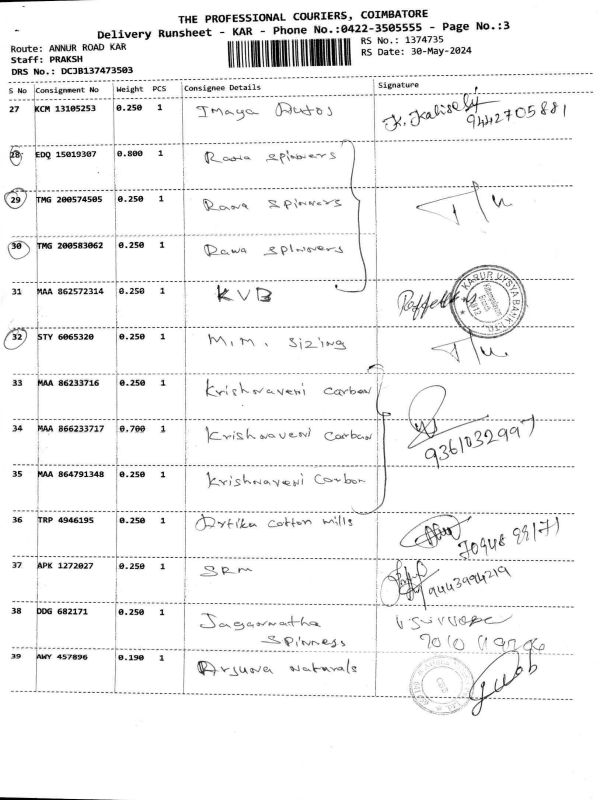 THE PROFESSIONAL COURIERS, COIMBATORE
Delivery Runsheet - KAR - Phone No.:0422-3505555 - Page No.:3
Route: ANNUR ROAD KAR
RS No.: 1374735
Staff: PRAKSH
RS Date: 30-May-2024
DRS No.: DCJB137473503
S No Consignment No Weight PCS Consignee Details Signature
27 KCM 13105253 0.250 1 Imaya Autos
9442705881
28 EDQ 15019307 0.800 1 Rawa Spinners
29 TMG 200574505 0.250 1 Rawa Spinners
30 TMG 200583062 0.250 1 Rawa Spinners
31 MAA 862572314 0.250 1 KVB
KARUR VYSYA BANK LTD.
32 STY 6065320 0.250 1 M.M. Sizing
33 MAA 86233716 0.250 1 Krishnaveni Carbon
34 MAA 866233717 0.700 1 Krishnaveni Carbon
9361032997
35 MAA 864791348 0.250 1 Krishnaveni Carbon
36 TRP 4946195 0.250 1 Artika Cotton Mills
37 APK 1272027 0.250 1 SRM
9443994219
38 DDG 682171 0.250 1 Jagannatha
Spinners
39 AWY 457896 0.190 1 Arjuna Naturals